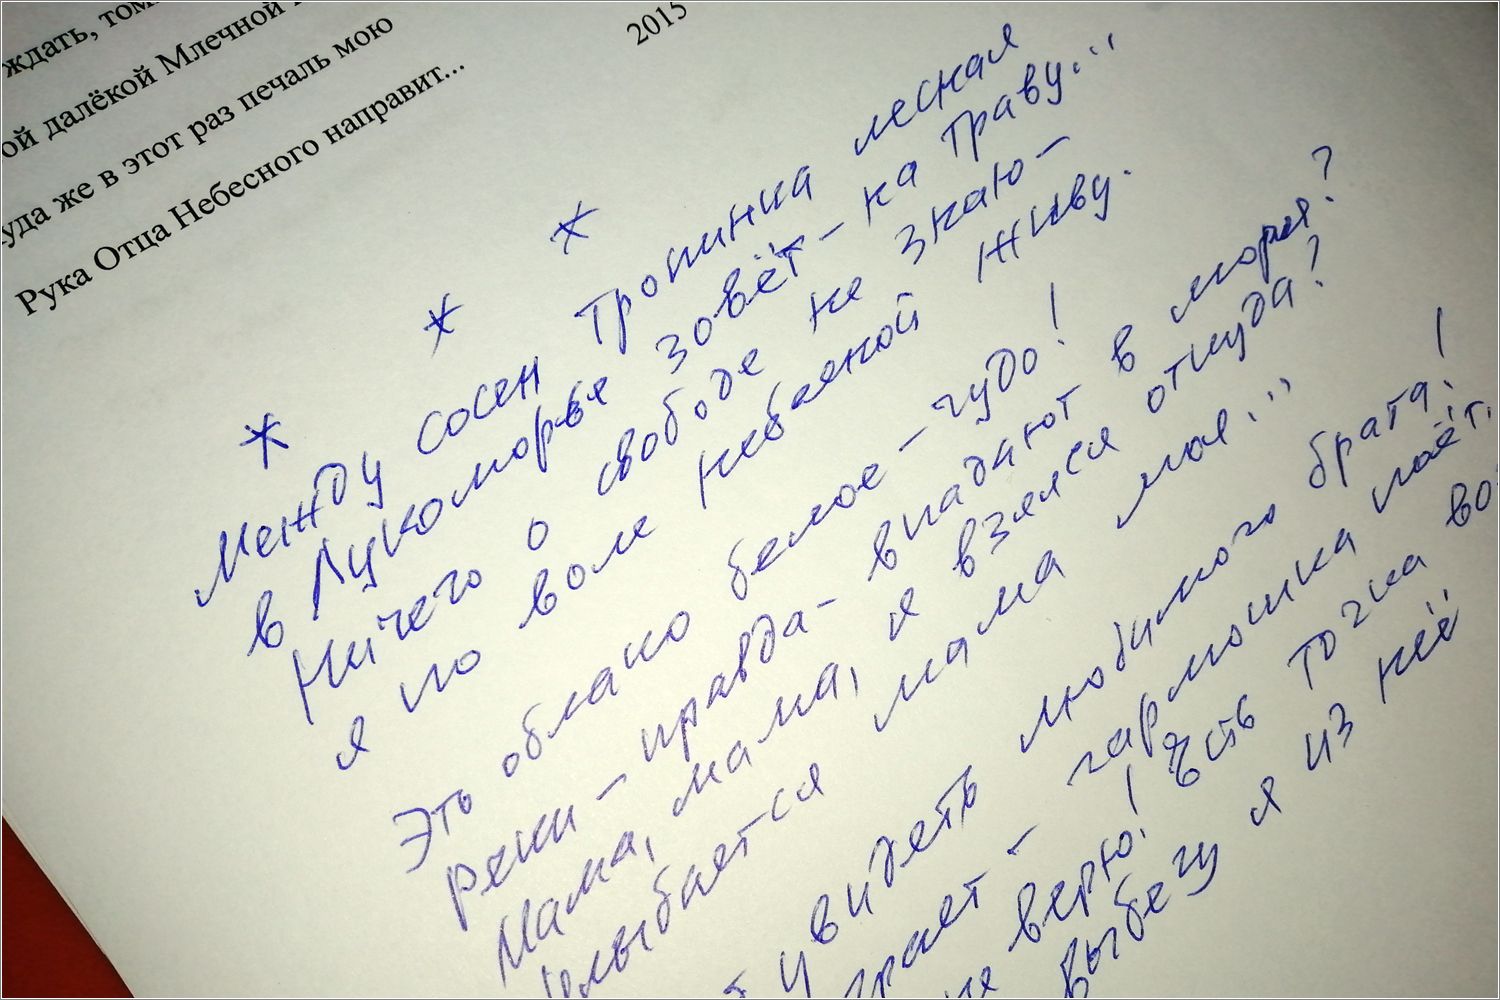 ждать,
ой далёкой Млечной
уда же в этот раз печаль мою
Рука Отца Небесного направит...
2015
* * *
Между сосен тропинка лесная
в Лукоморье зовёт – на траву...
Ничего о свободе не знаю –
я по воле небесной живу.
Это облако белое – чудо!
Реки – правда – впадают в моря?
Мама, мама, я взялся откуда?
Улыбается мама моя...
увидеть любимого брата!
грает – гармошка поёт.
не верю! Есть точка во
выбегу я из неё